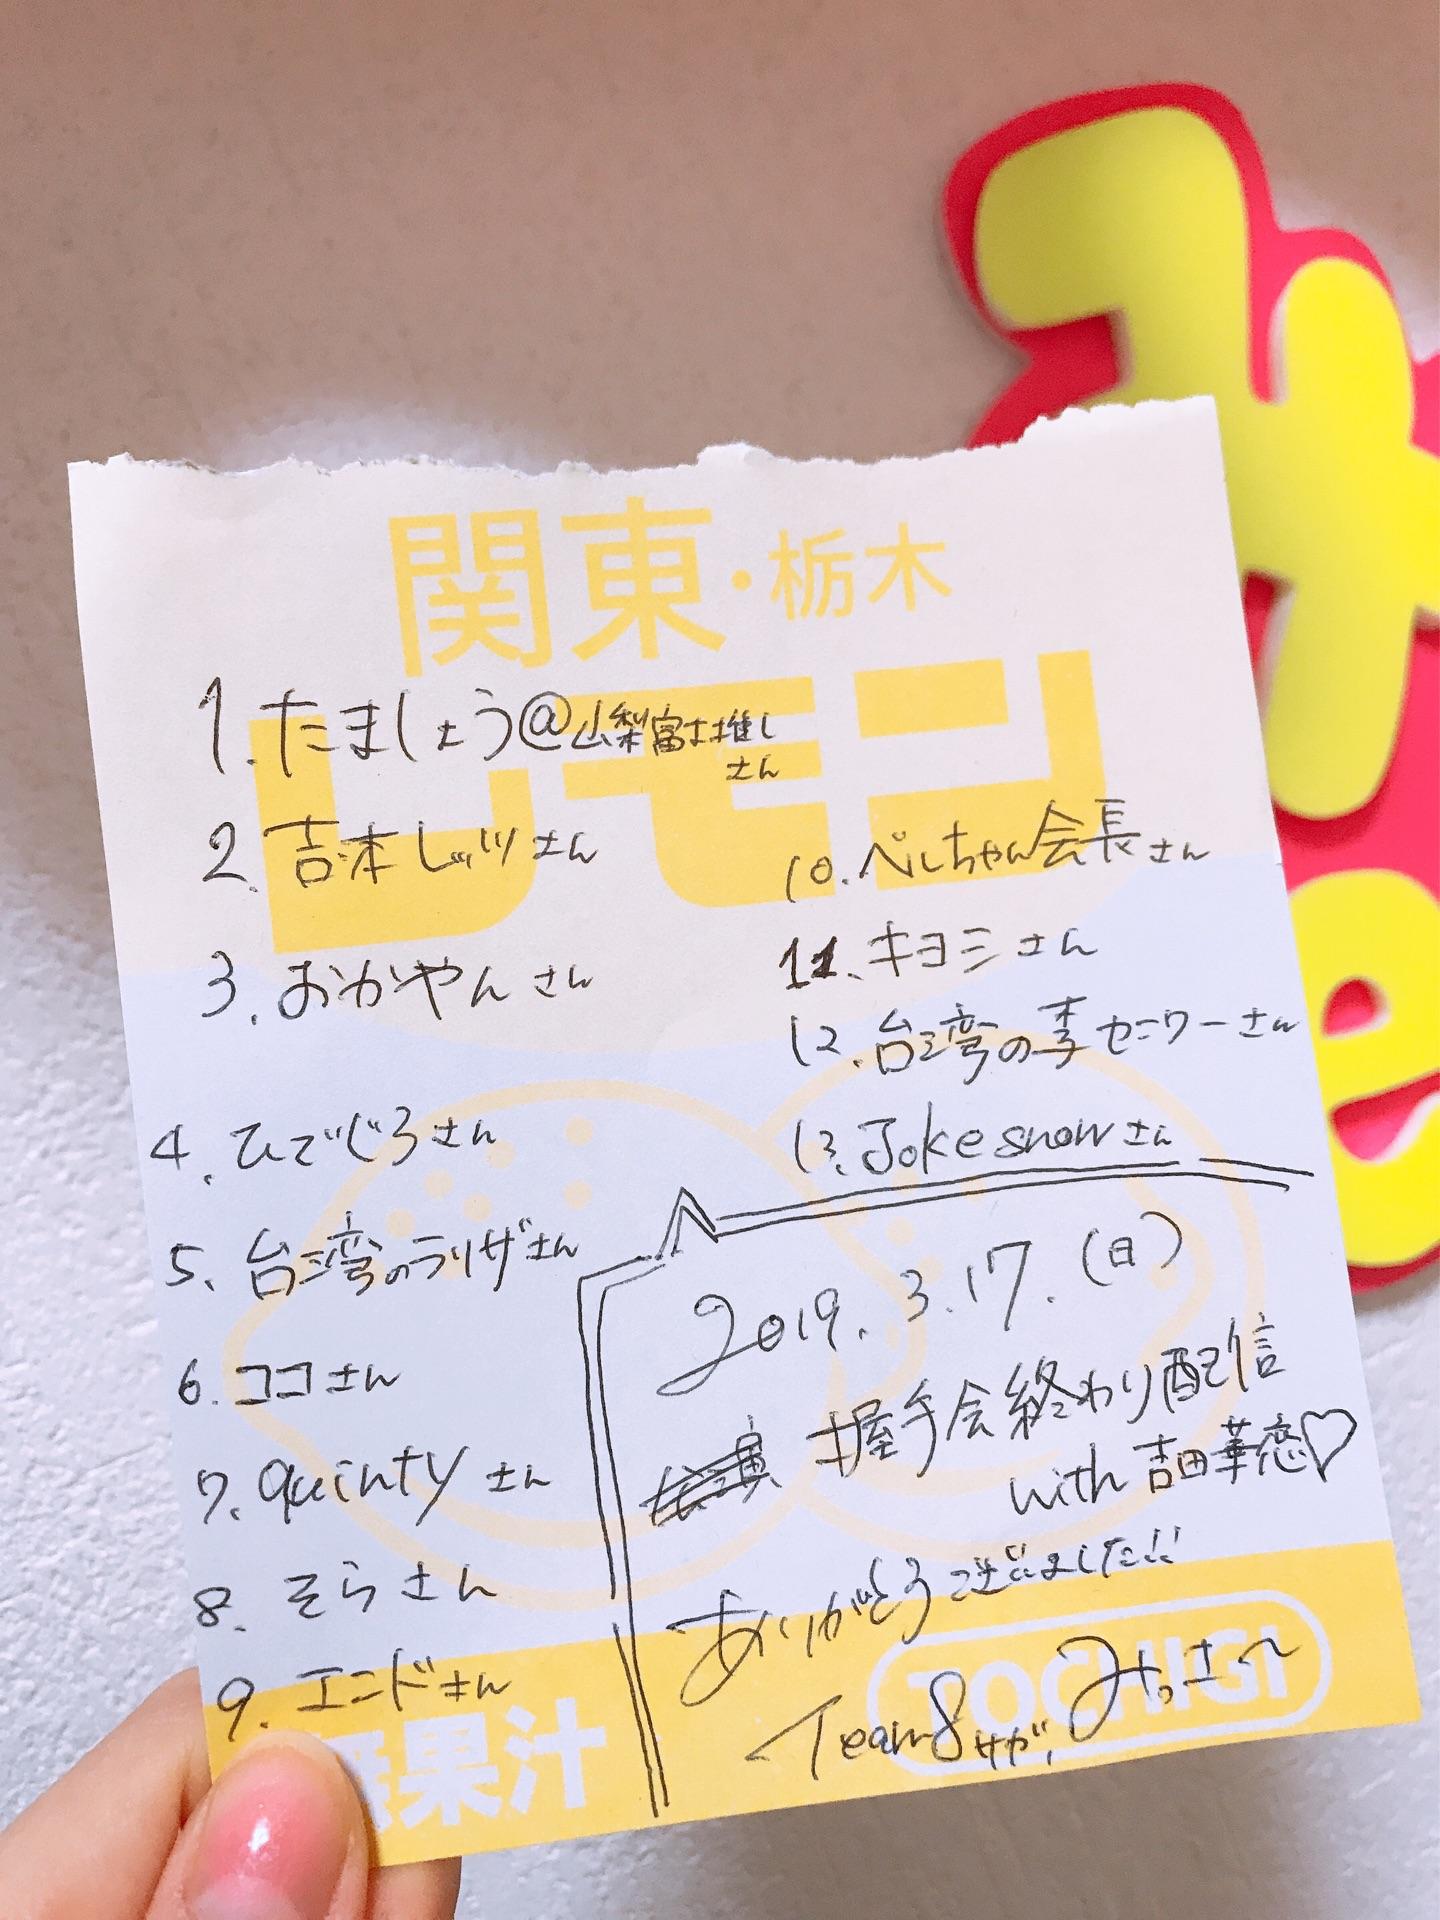 関東・栃木
レモン
1.たましょう@山梨富士推し
さん
2.吉本レッツさん
3.おかやんさん
4.ひでじろさん
5.台湾のラリザさん
6.ココさん
7.quintyさん
8.そらさん
9.エンドさん
10.ペしちゃん会長さん
11.キヨシさん
12.台湾の李セニワーさん
13.Joke snowさん
2019.3.17.(日)
握手会終わり配信
with 吉田華恋♡
ありがとうございました!!
Team8サガ、みっさー
無果汁
TOCHIGI
み
e